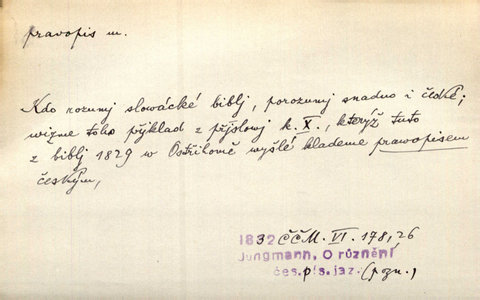 pravopis m.
Kdo rozumj slowácké biblj, porozumj snadno i české;
wizme toho přjklad z přjslowj k. X., kterýž tuto
z biblj 1829 w Ostřihomě wyšlé klademe prawopisem
českým,
1832 ČČM. VI. 178, 26
Jungmann, O různění
čes. pís. jaz. (pozn.)